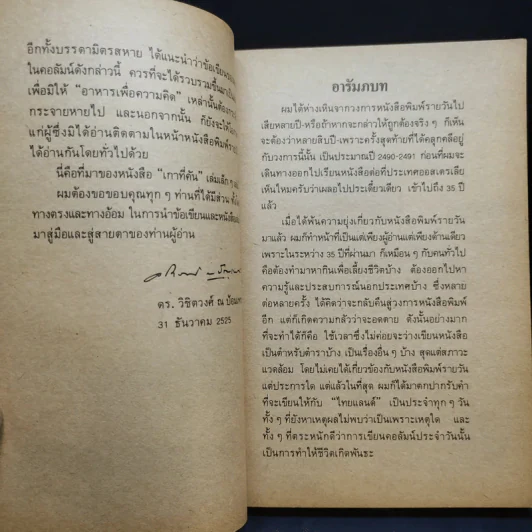 อีกทั้งบรรดามิตรสหาย ได้แนะนำว่าข้อเขียน
ในคอลัมน์ดังกล่าวนี้ ควรที่จะได้รวบรวมขึ้นมาเป็น
เพื่อมิให้ "อาหารเพื่อความคิด" เหล่านั้นต้อง
กระจายหายไป และนอกจากนั้น ก็ยังจะให้
แก่ผู้ซึ่งมิได้อ่านติดตามในหน้าหนังสือพิมพ์
ได้อ่านกันโดยทั่วไปด้วย
นี่คือที่มาของหนังสือ "เกาที่คัน" เล่มเล็ก ๆ
ผมต้องขอขอบคุณทุก ๆ ท่านที่ได้มีส่วน
ทางตรงและทางอ้อม ในการนำข้อเขียนและหนังสือ
มาสู่มือและสู่สายตาของท่านผู้อ่าน
ดร. วิชิตวงศ์ ณ ป้อมเพชร
31 ธันวาคม 2525
อารัมภบท
ผมได้ห่างเหินจากวงการหนังสือพิมพ์รายวันไป
เสียหลายปี-หรือถ้าหากจะกล่าวให้ถูกต้องจริง ๆ ก็เห็น
จะต้องว่าหลายสิบปี-เพราะครั้งสุดท้ายที่ได้คลุกคลีอยู่
กับวงการนี้นั้น เป็นประมาณปี 2490-2491 ก่อนที่ผมจะ
เดินทางออกไปเรียนหนังสือต่อที่ประเทศออสเตรเลีย
เห็นไหมครับว่าเผลอไปประเดี๋ยวเดียว เข้าไปถึง 35 ปี
แล้ว
เมื่อได้พ้นความยุ่งเกี่ยวกับหนังสือพิมพ์รายวัน
มาแล้ว ผมก็ทำหน้าที่เป็นแต่เพียงผู้อ่านแต่เพียงด้านเดียว
เพราะในระหว่าง 35 ปีที่ผ่านมา ก็เหมือน ๆ กับคนทั่วไป
คือต้องทำมาหากินเพื่อเลี้ยงชีวิตบ้าง ต้องออกไปหา
ความรู้และประสบการณ์นอกประเทศบ้าง ซึ่งหลาย
ต่อหลายครั้ง ได้คิดว่าจะกลับคืนสู่วงการหนังสือพิมพ์
อีก แต่ก็เกิดความกลัวว่าจะอดตาย ดังนั้นอย่างมาก
ที่จะทำได้ก็คือ ใช้เวลาซึ่งไม่ค่อยจะว่างเขียนหนังสือ
เป็นตำหรับตำราบ้าง เป็นเรื่องอื่น ๆ บ้าง สุดแต่สภาวะ
แวดล้อม โดยไม่เคยได้เกี่ยวข้องกับหนังสือพิมพ์รายวัน
แต่ประการใด แต่แล้วในที่สุด ผมก็ได้มาตกปากรับคำ
ที่จะเขียนให้กับ "ไทยแลนด์" เป็นประจำทุก ๆ วัน
ทั้ง ๆ ที่ยังหาเหตุผลไม่พบว่าเป็นเพราะเหตุใด และ
ทั้ง ๆ ที่ตระหนักดีว่าการเขียนคอลัมน์ประจำวันนั้น
เป็นการทำให้ชีวิตเกิดพันธะ